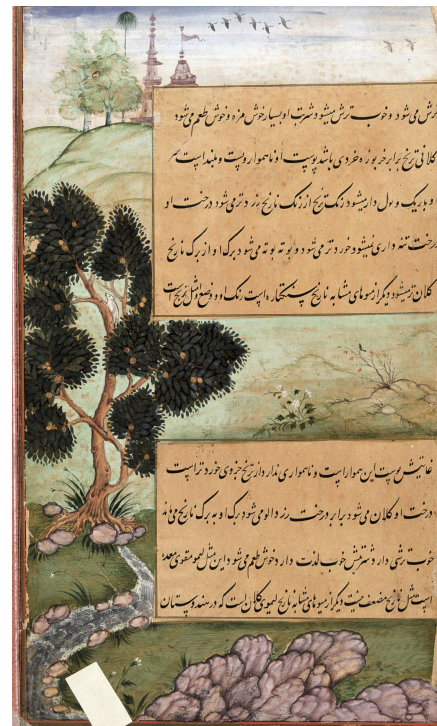 ترش می شود و خوب ترش میشود شربت او بسیار خوش مزه و خوش طعم می شود
کلانی ترنج برابر خربوزه خردی باشد پوست او ناهموار و پست و بلند است سر
او باریک و دار میشود رنک ترنج از رنک نارنج زردتر می شود درخت او
درخت تنه داری نمیشود خوردتر می شود و بوته بوته می شود برک او از برک نارنج
کلان تر میشود دیگر از میوهای مشابه نارنج سنکتره است رنک او و وضع او مثل ترنج است
غایتش پوست این هموار است و ناهمواری ندارد از نارنج جزوی خوردتر است
درخت او کلان می شود برابر درخت زردالو می شود برک او به برک نارنج می ماند
خوب ترشی دارد شربتش خوب لذت دار و خوش طعم می شود این مثل لیمو مقوی معده
است مثل نارنج مضعف نیست دیگر از میوهای مشابه نارنج لیموی کلان است که در هندوستان